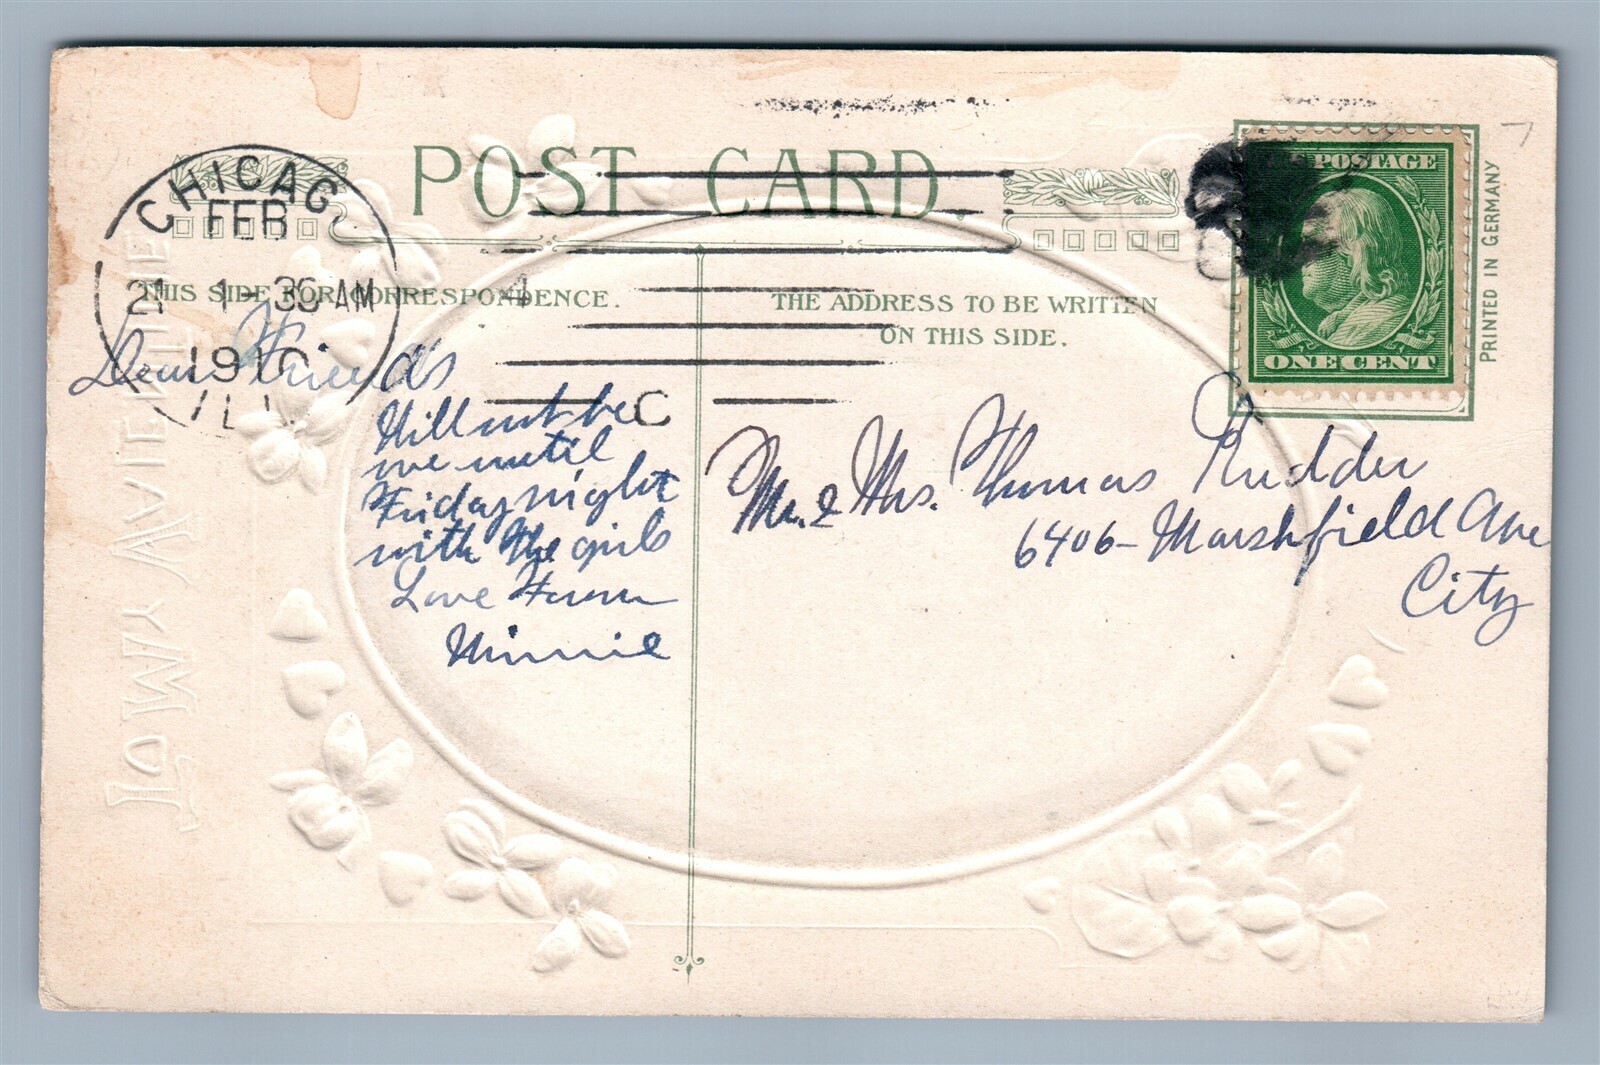 POST CARD.
CHICAG
FEB
21 1-30 AM
1910
ILL
4
C
U.S. POSTAGE
ONE CENT
PRINTED IN GERMANY
THIS SIDE FOR CORRESPONDENCE.
THE ADDRESS TO BE WRITTEN
ON THIS SIDE.
Dear Friends
Will not be
until
Friday night
with the girls
Love From
Minnie
Mr. & Mrs. Thomas Rudder
6406- Marshfield Ave
City
To My Valentine